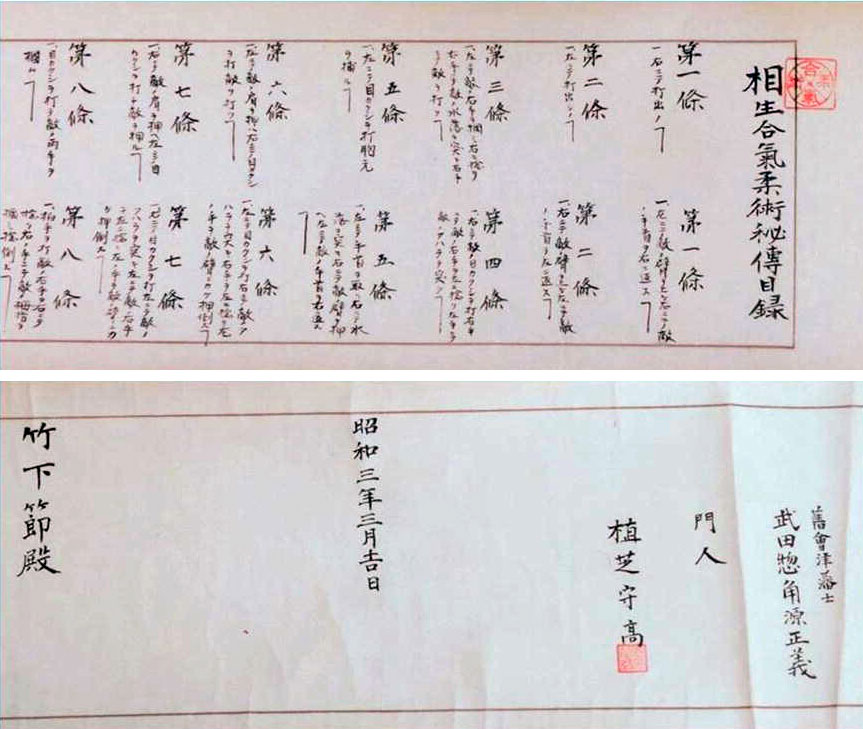 相生合氣柔術秘傳目録
第一條
一、右ニテ打出ノ
第二條
一、左ニテ打出シノ
第三條
一、左ニテ敵ノ右手ヲ掴ミ右ニ捻ヲ
右手ニテ敵ノ水落ヲ突キ右手
ニテ敵ヲ打ツ
第五條
一、左ニテ目カクシヲ打胸元
ヲ捕ル
第六條
一、左ニテ敵ノ肩ヲ押ヘ右ニテ目カクシ
ヲ打敵ヲ打ツ
第七條
一、右ニテ敵ノ肩ヲ押ヘ左ニテ目
カクシヲ打チ敵ヲ押ル
第八條
一、目カクシヲ打チ敵ノ両手ヲ
掴ム
第一條
一、左ニテ敵ノ臂 右ニテ敵
ノ手首ヲ右ニ返ス
第二條
一、右ニテ敵ノ臂 左ニテ敵
ノ手首ヲ左ニ返ス
第四條
一、右ニテ敵ノ目カクシヲ打右手
ニテ敵ノ右手ヲ左ニ捻ヲ左手ニテ
敵ノアハラヲ突ク
第五條
一、左ニテ手首ヲ取リ右ニテ水
落ヲ突キ右ニテ敵ノ臂ヲ押
ヘ左ニテ敵ノ手首ヲ右ニ返ス
第六條
一、左ニテ目カクシヲ打右ニテ敵ノア
ハラヲ突キ右手ニテ左ニ捻ヲ左
ノ手ヲ敵ノ臂ニカケ押倒ス
第七條
一、右ニテ目カクシヲ打左ニテ敵ノ
アハラヲ突キ左ニテ敵ノ右手
ヲ左ニ捻ヲ左ノ手ヲ敵ノ臂ニカ
ケ押倒ス
第八條
一、拍手ヲ打敵ノ右手ヲ右ニテ
捻ヲ右ノ手ニテ敵ノ拇指ヲ
掴ミ捻倒ス
舊會津藩士
武田惣角源正義
門人
植芝守高
昭和三年三月吉日
竹下節殿